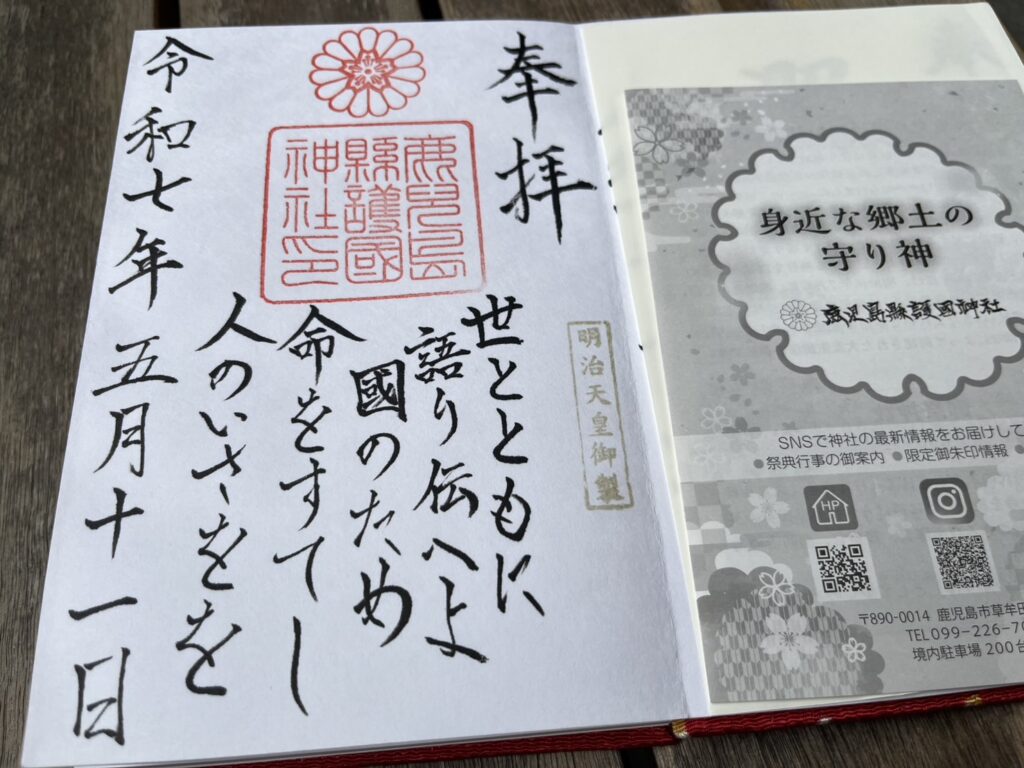 奉拝
明治天皇御製
世とともに
語り伝へよ
國のため
命をすてし
人のいさをを
鹿兒島
縣護國
神社印
令和七年五月十一日
身近な郷土の
守り神
鹿児島縣護國神社
SNSで神社の最新情報をお届けして
●祭典行事の御案内 ●限定御朱印情報 ●
HP
〒890-0014 鹿児島市草牟田
TEL 099-226-70
境内駐車場 200台